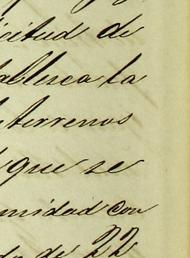 icitud de
tablesca la
terrenos
que se
unidad con
do de 22